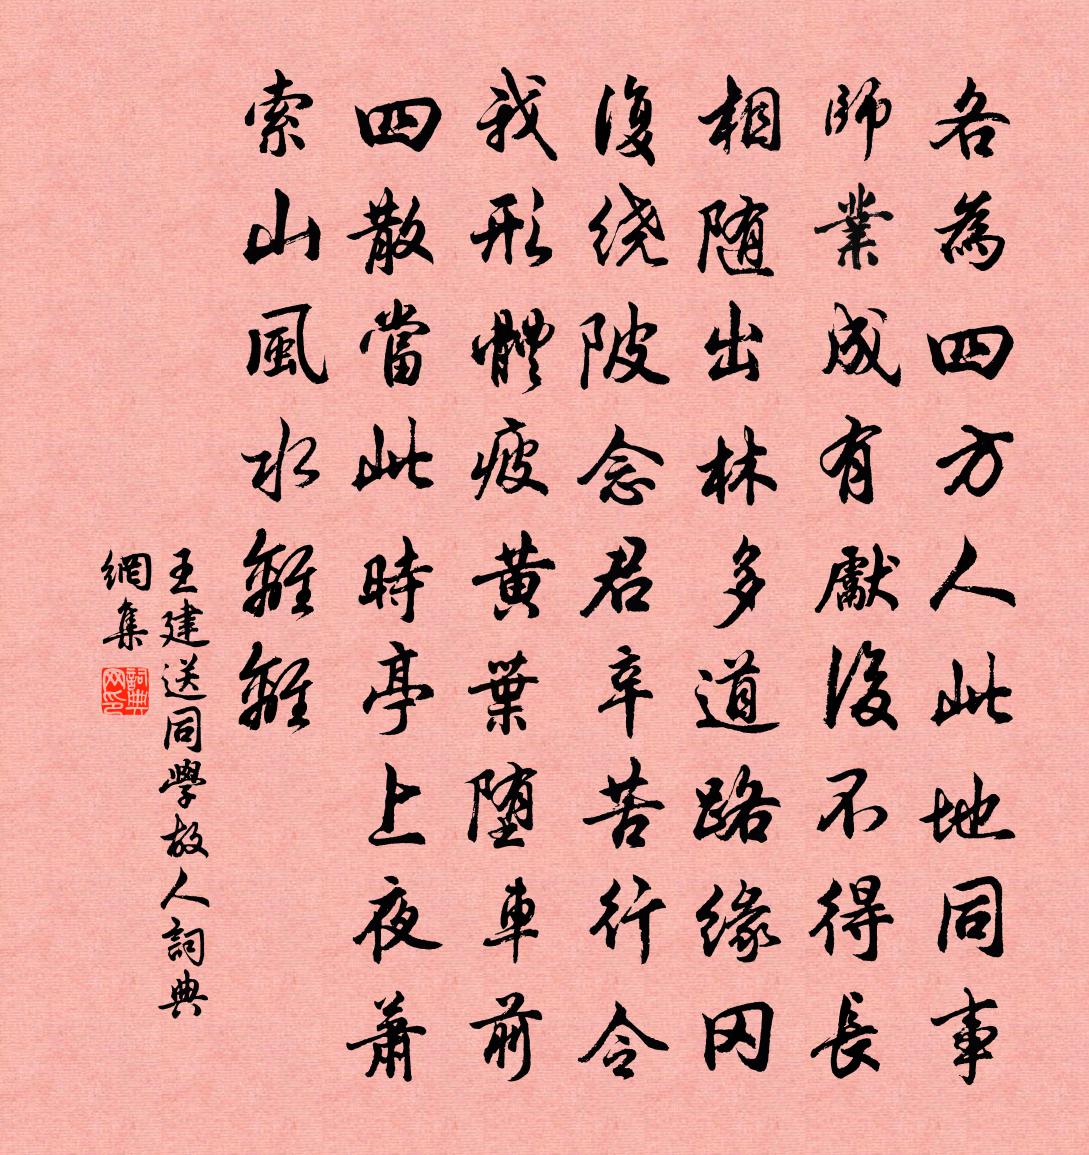 各為四方人此地同事
師業成有獻後不得長
相随出林多道路缘冈
復绕陂念君辛苦行令
我形體疲黄葉堕車前
四散當此時亭上夜蕭
索山風水離離
王建送同學故人詞典
網集
詞典网印